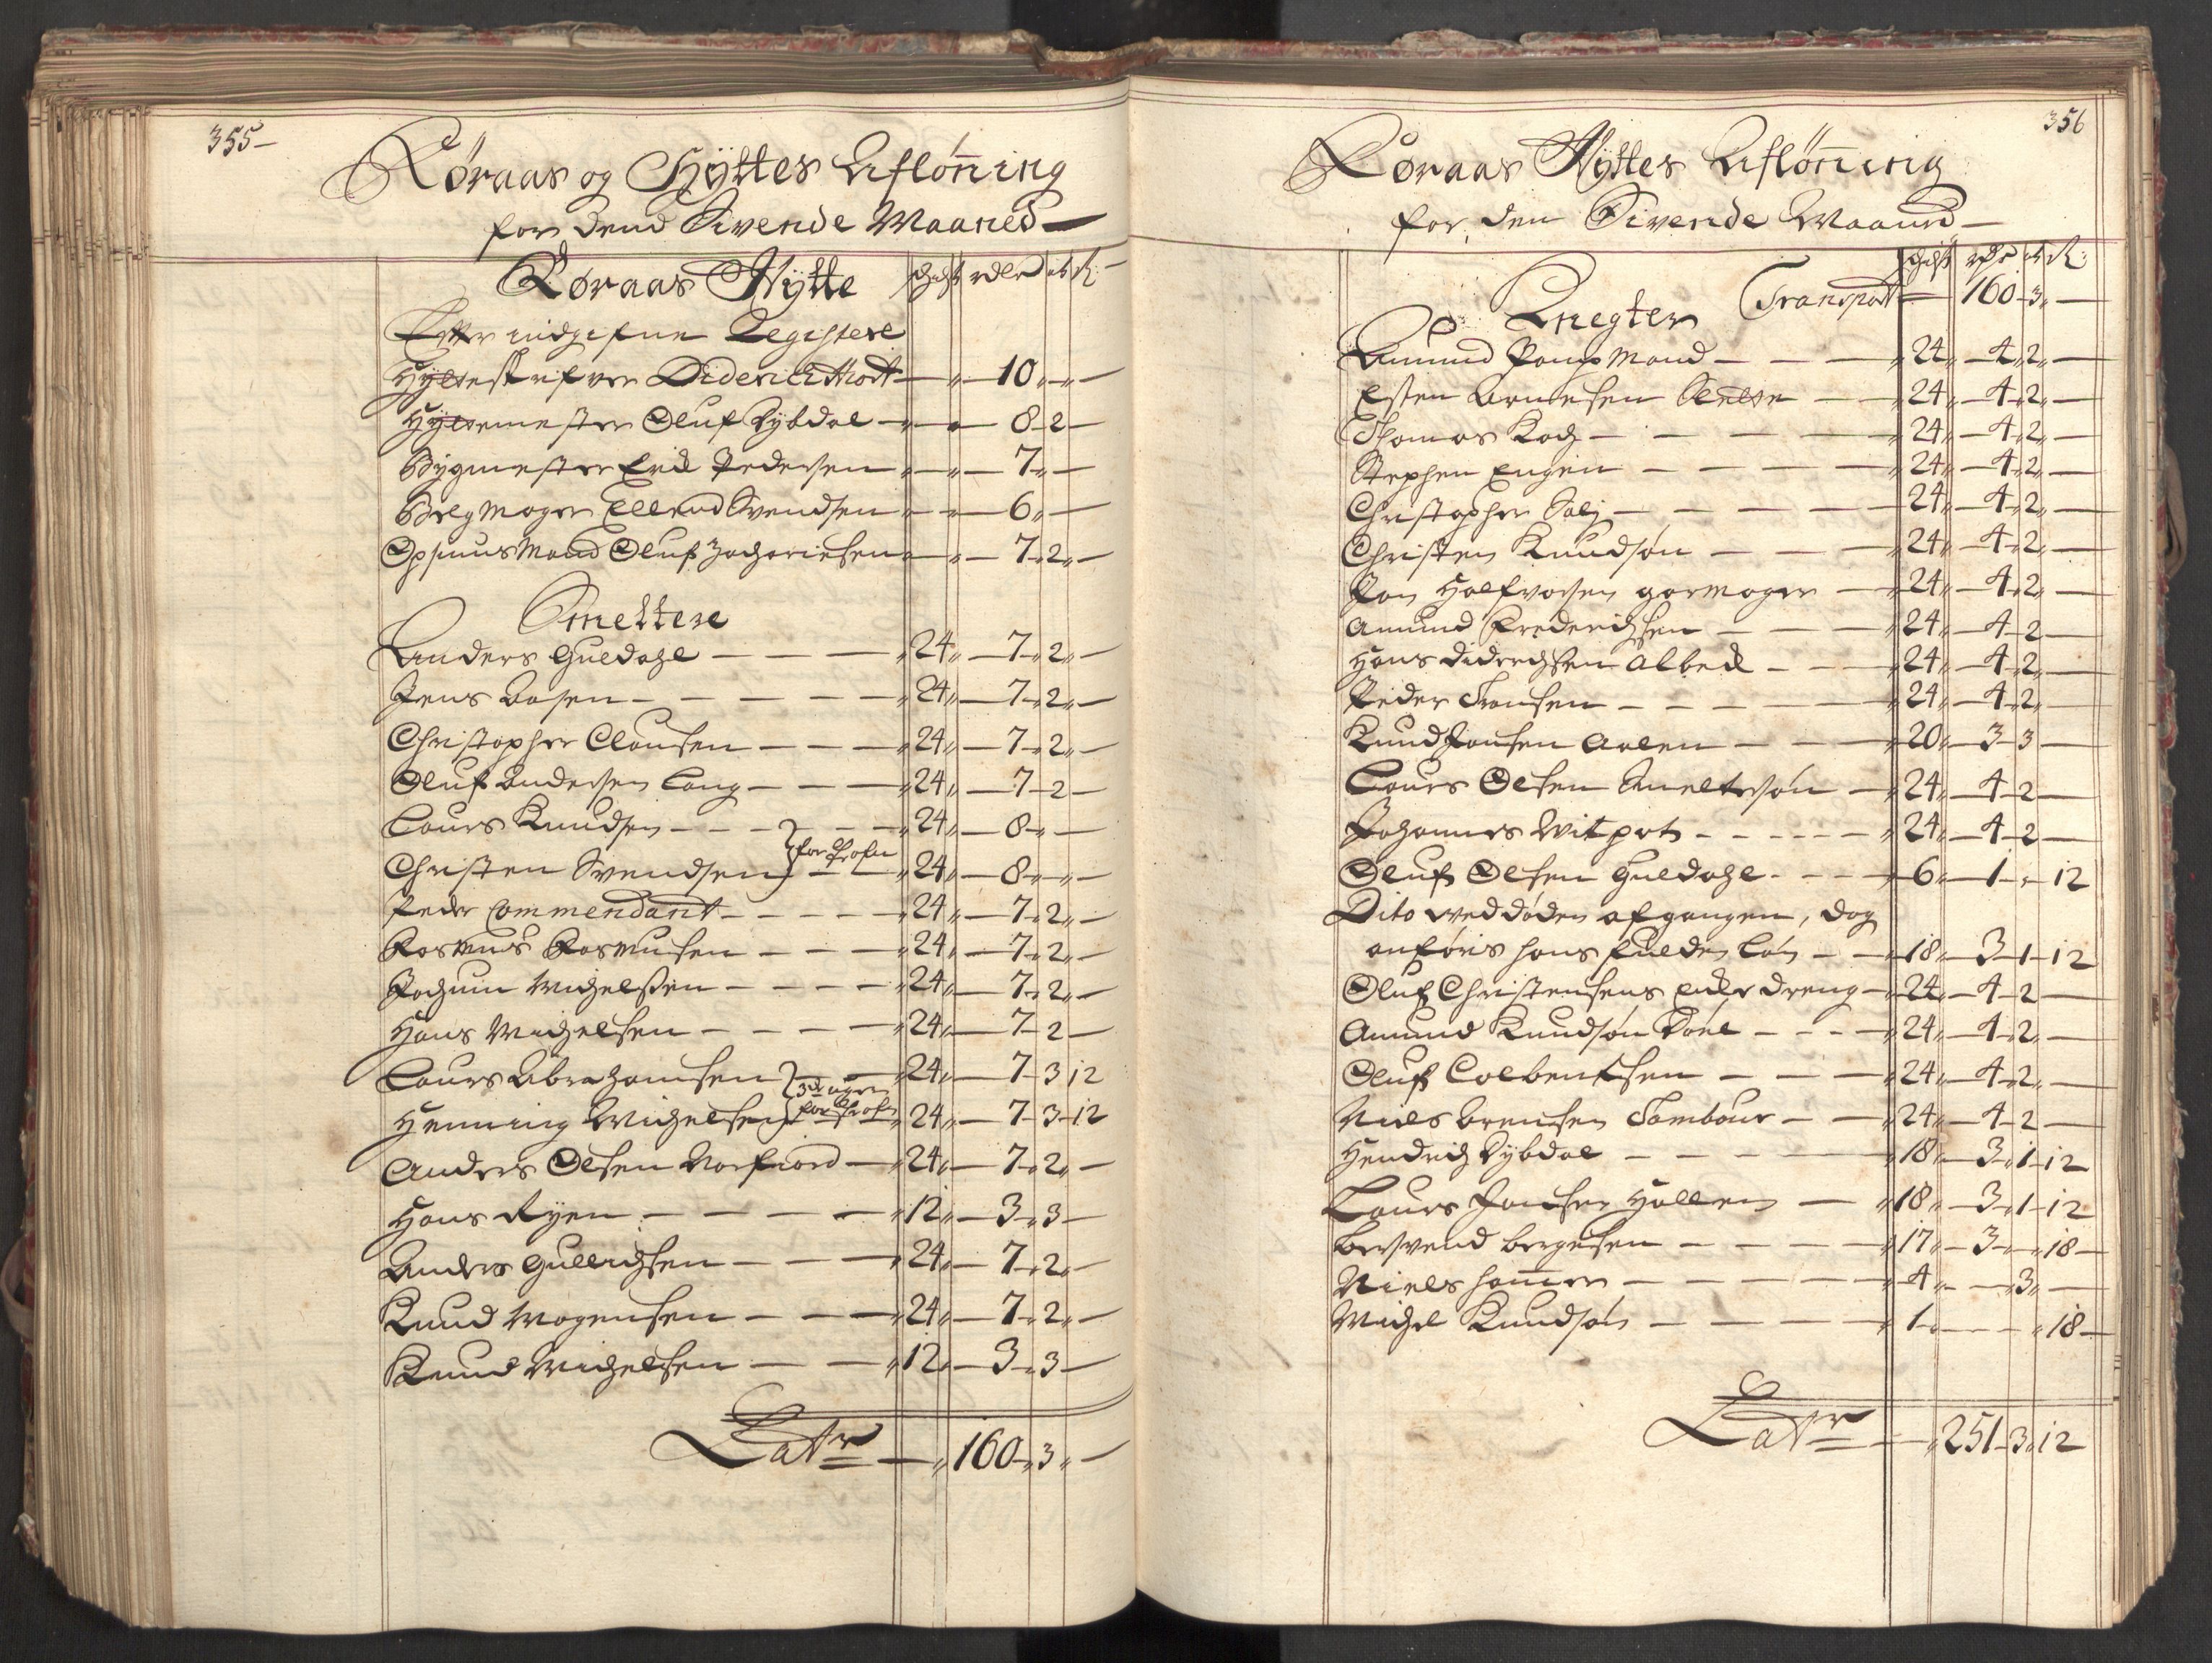 355
Røraas og Hÿttes Aflønning
for dend Sivende Maaned
Røraas Hÿtte schigt rdlr ort ß:
Efter indgifne Registere
Hÿtteskrifver Diderich Mort — 10
Hÿttemester Oluf Dybdal — 8 - 2
Bÿgmester Erik Pedersen — 7
Belgmager Ellend Svendsen — 6
Opsiuns Mand Oluf Zachariesen — 7 - 2
Smeltere
Anders Guldahl — 24 — 7 - 2
Jens Aasen — 24 — 7 - 2
Christopher Clausen — 24 — 7 - 2
Oluf Andersen Lang — 24 — 7 - 2
Laurs Knudsen — 24 — 8
Christen Svendsen } for — 24 — 8
Peder Commendant — 24 — 7 - 2
Rasmus Rasmusen — 24 — 7 - 2
Jochum Michelsen — 24 — 7 - 2
Hans Michelsen — 24 — 7 - 2
Laurs Abrahamsen — 24 — 7 - 3 12
Henning Michelsen } 3 uger for — 24 — 7 - 3 - 12
Anders Olsen Norfiord — 24 — 7 - 2
Hans Ryen — 12 — 3 - 3
Anders Gullichsen — 24 — 7 - 2
Knud Mogensen — 24 — 7 - 2
Knud Michelsen — 12 — 3 - 3
Latr — 160 - 3
356
Røraas Hÿttes Aflønning
for den Sivende Maaned
schigt rdlr ort ß:
Transport — 160 - 3
Knegter
Amund Pompmand — 24 — 4 - 2
Esten Arnesen — 24 — 4 - 2
Thomas Koch — 24 — 4 - 2
Stephen Engen — 24 — 4 - 2
Christopher Sali — 24 — 4 - 2
Christen Knudsøn — 24 — 4 - 2
Jon Halfvorsen garmager — 24 — 4 - 2
Amund Frederichsen — 24 — 4 - 2
Hans Didrichsen Albek — 24 — 4 - 2
Peder Transen — 24 — 4 - 2
Knud Jonsen Aalen — 20 — 3 - 3
Laurs Olsen Smeltersøn — 24 — 4 - 2
Johannes Witpot — 24 — 4 - 2
Oluf Olsen Guldahl — 6 — 1 - 12
Dito ved døden afgangen, dog
anføris hans fulde Løn — 18 — 3 - 1 - 12
Oluf Christensens dreng — 24 — 4 - 2
Amund Knudsøn — 24 — 4 - 2
Oluf Colbentsen — 24 — 4 - 2
Niels Arensen Tambour — 24 — 4 - 2
Hendrich Dybdal — 18 — 3 - 1 - 12
Laurs Jonsen Hallen — 18 — 3 - 1 - 12
Bersvend Bergesen — 17 — 3 — 18
Niels hammer — 4 — 3
Michel Knudsøn — 1 — 18
Latr — 251 - 3 - 12